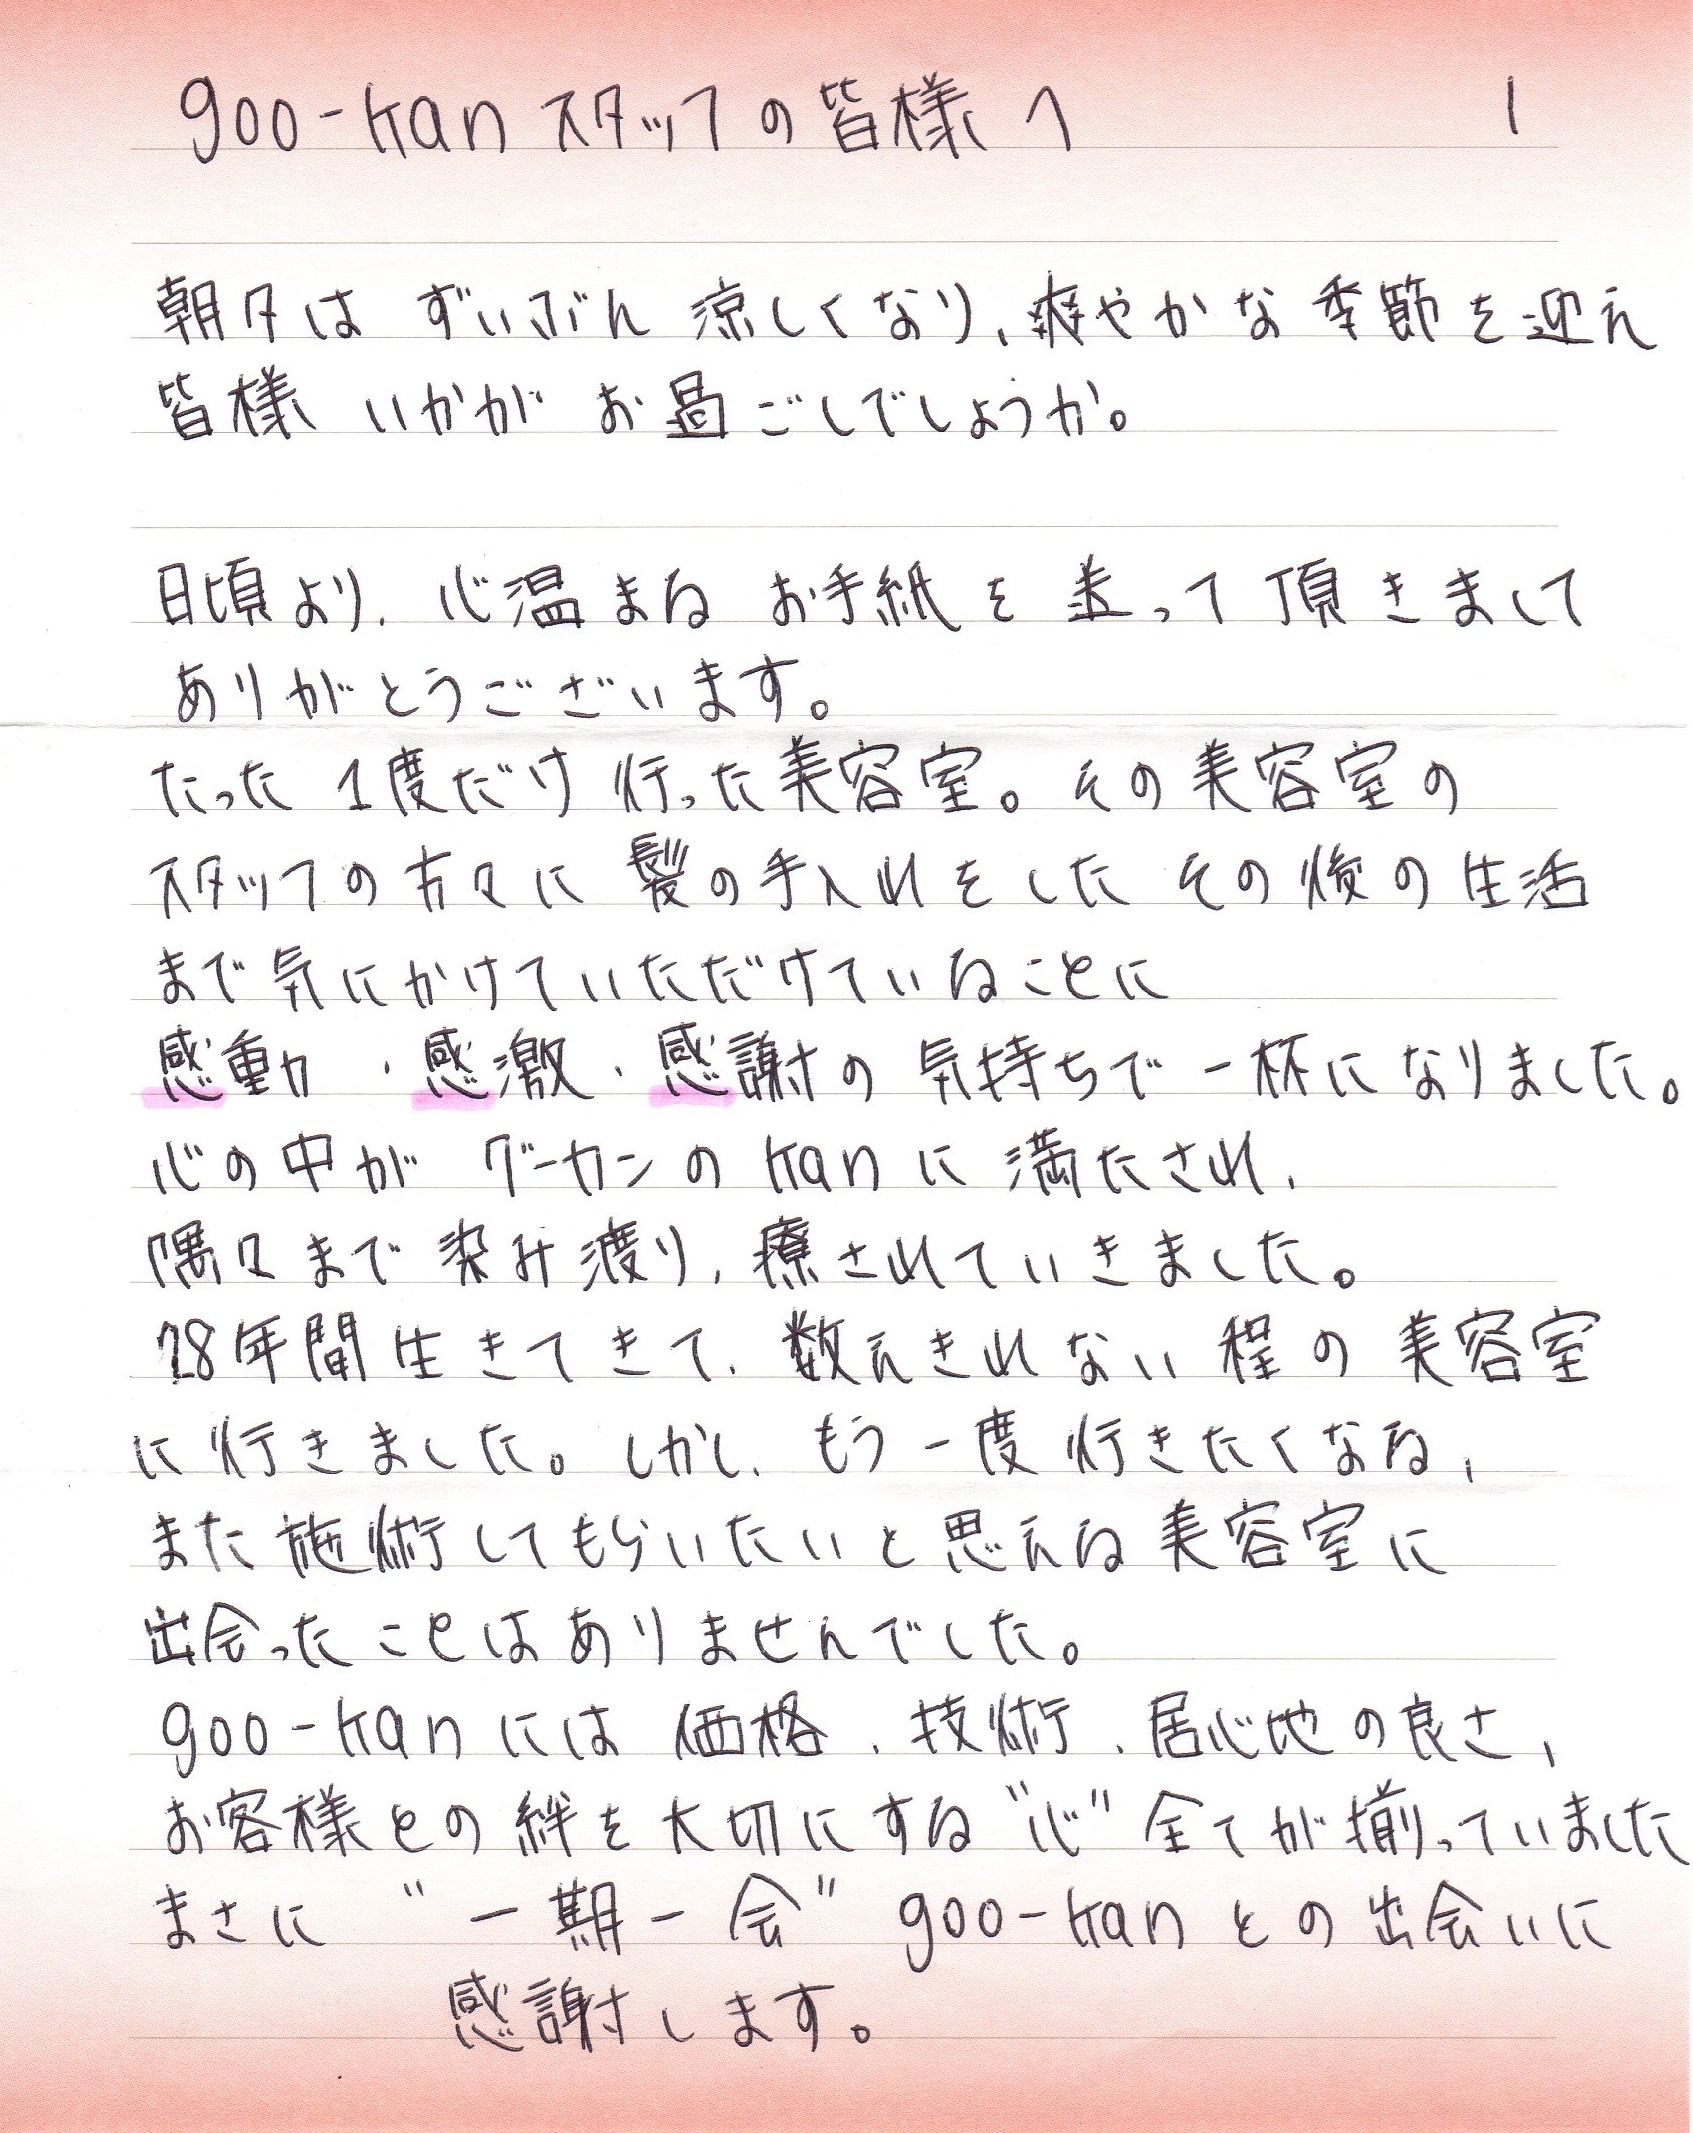 goo-kanスタッフの皆様へ 1
朝夕は ずいぶん 涼しくなり、爽やかな季節を迎え
皆様 いかが お過ごしでしょうか。
日頃より、心温まる お手紙を送って頂きまして
ありがとうございます。
たった 1度だけ 行った美容室。その美容室の
スタッフの方々に 髪の手入れをした その後の生活
まで気にかけていただけていることに
感動・感激・感謝の気持ちで一杯になりました。
心の中が グーカンの kanに満たされ、
隅々まで染み渡り、療されていきました。
28年間生きてきて、数えきれない程の美容室
に行きました。しかし、もう一度行きたくなる、
また施術してもらいたいと思える美容室に
出会ったことはありませんでした。
goo-kanには 価格、技術、居心地の良さ、
お客様との絆を大切にする"心"全てが揃っていました
まさに "一期一会" goo-kanとの出会いに
感謝します。